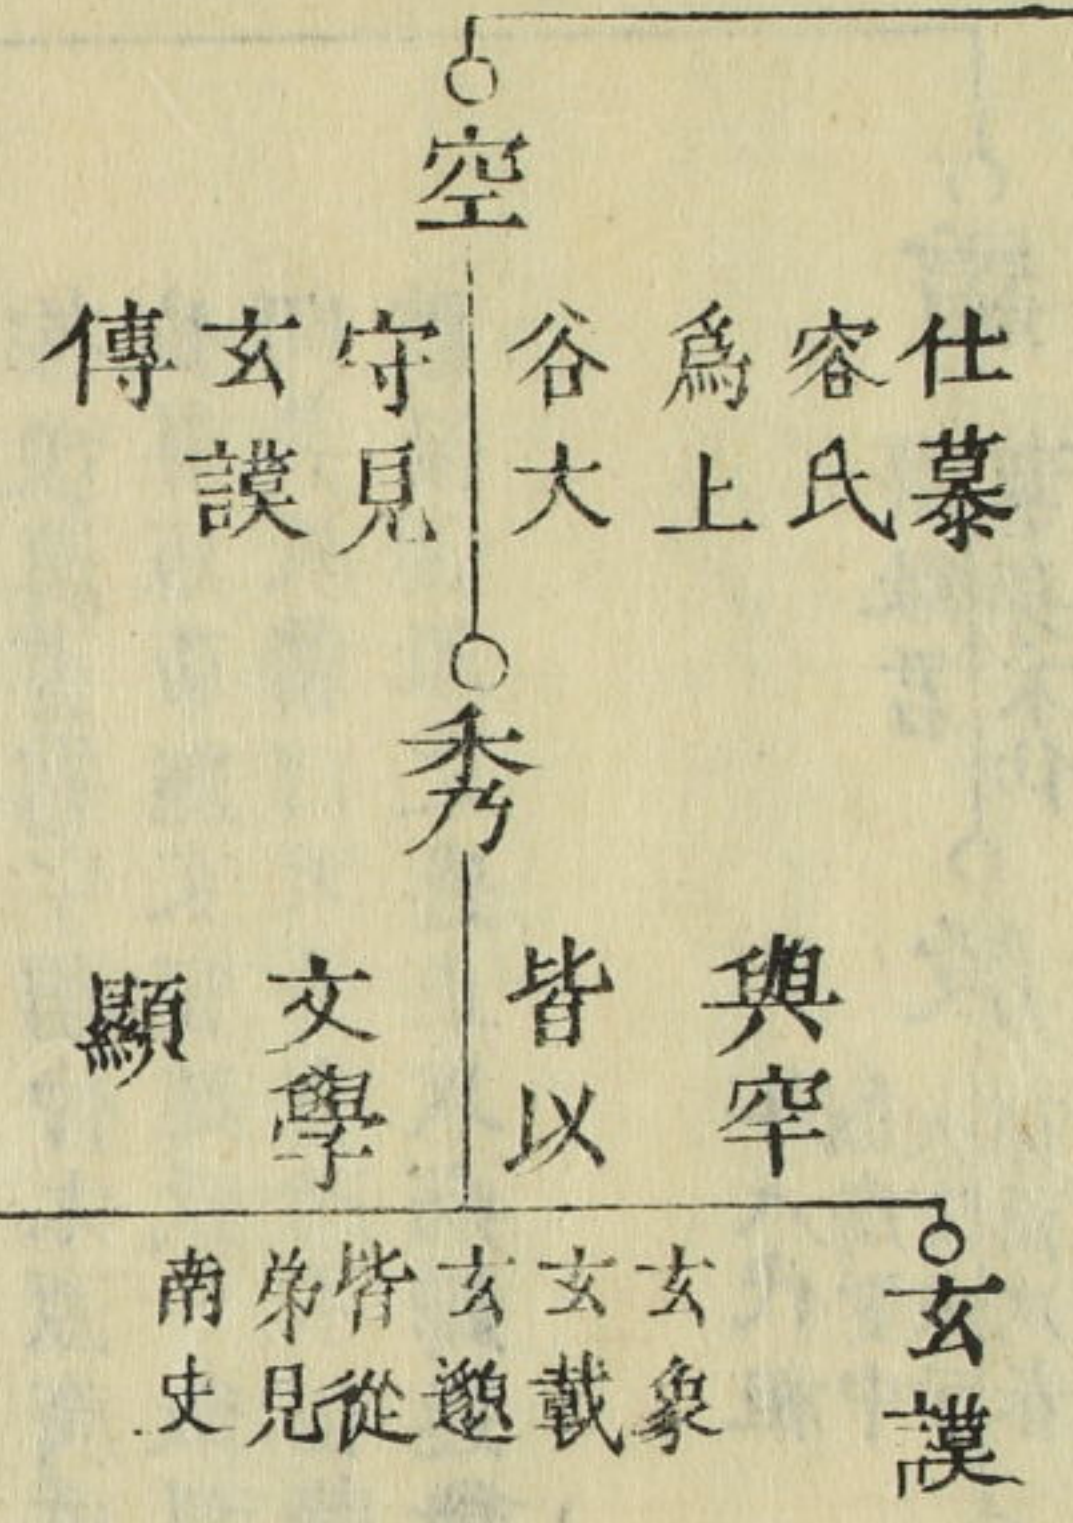 空
仕慕
容氏
爲上
谷大
守見
玄謨
傳
秀
與罕
皆以
文學
顯
玄謨
玄象
玄載
玄邈
皆從
弟見
南史